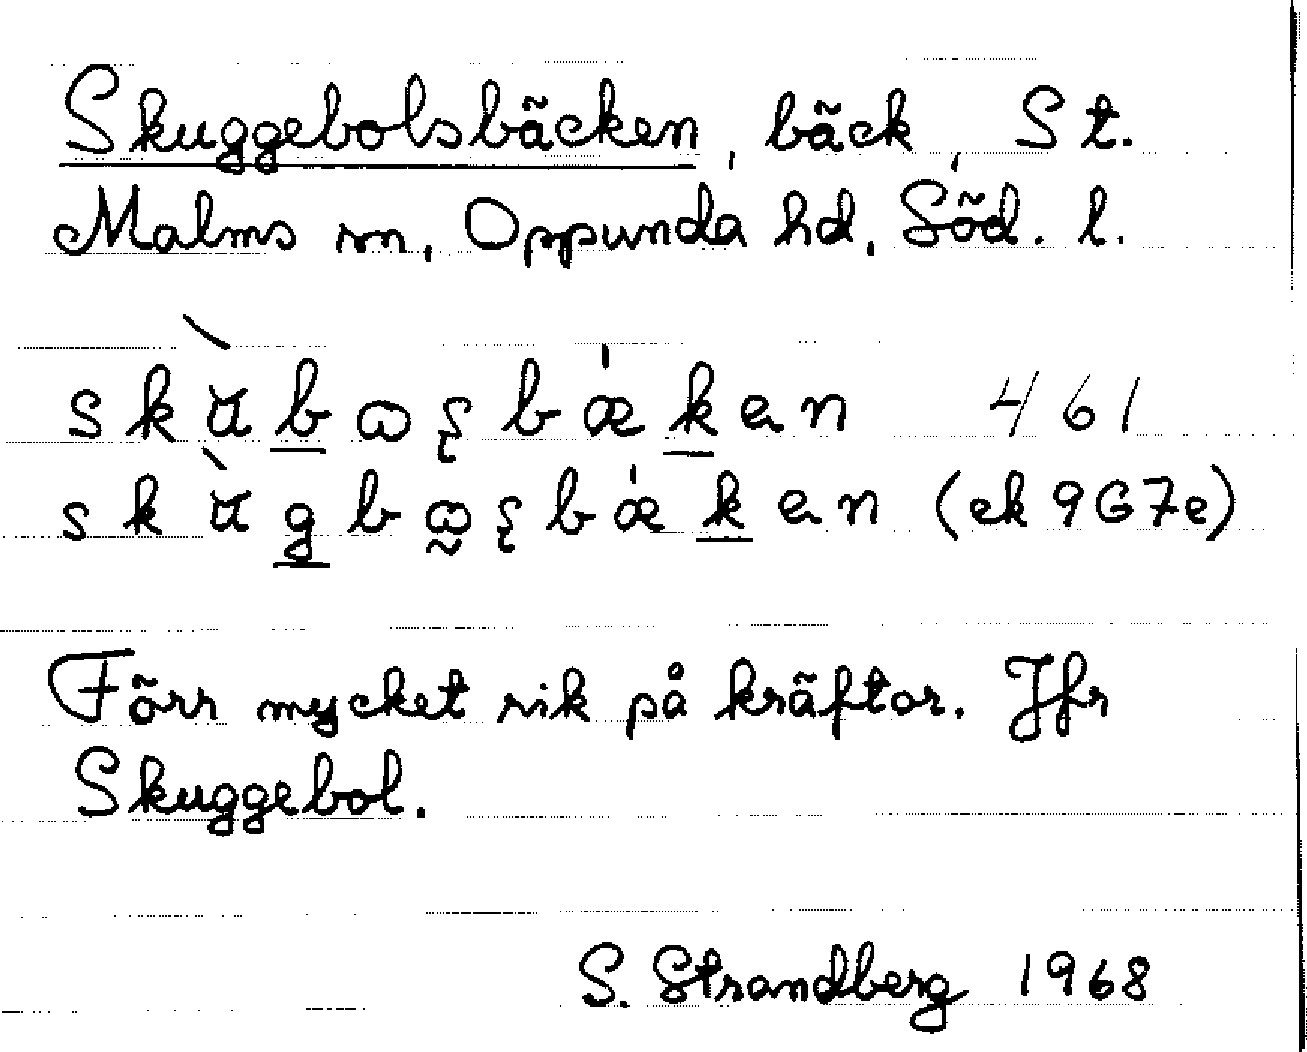 Skuggebolsbäcken, bäck, St.
Malms sn, Oppunda hd, Söd. l.
461
(ek 9G7e)
Förr mycket rik på kräftor. Jfr
Skuggebol.
S. Strandberg 1968